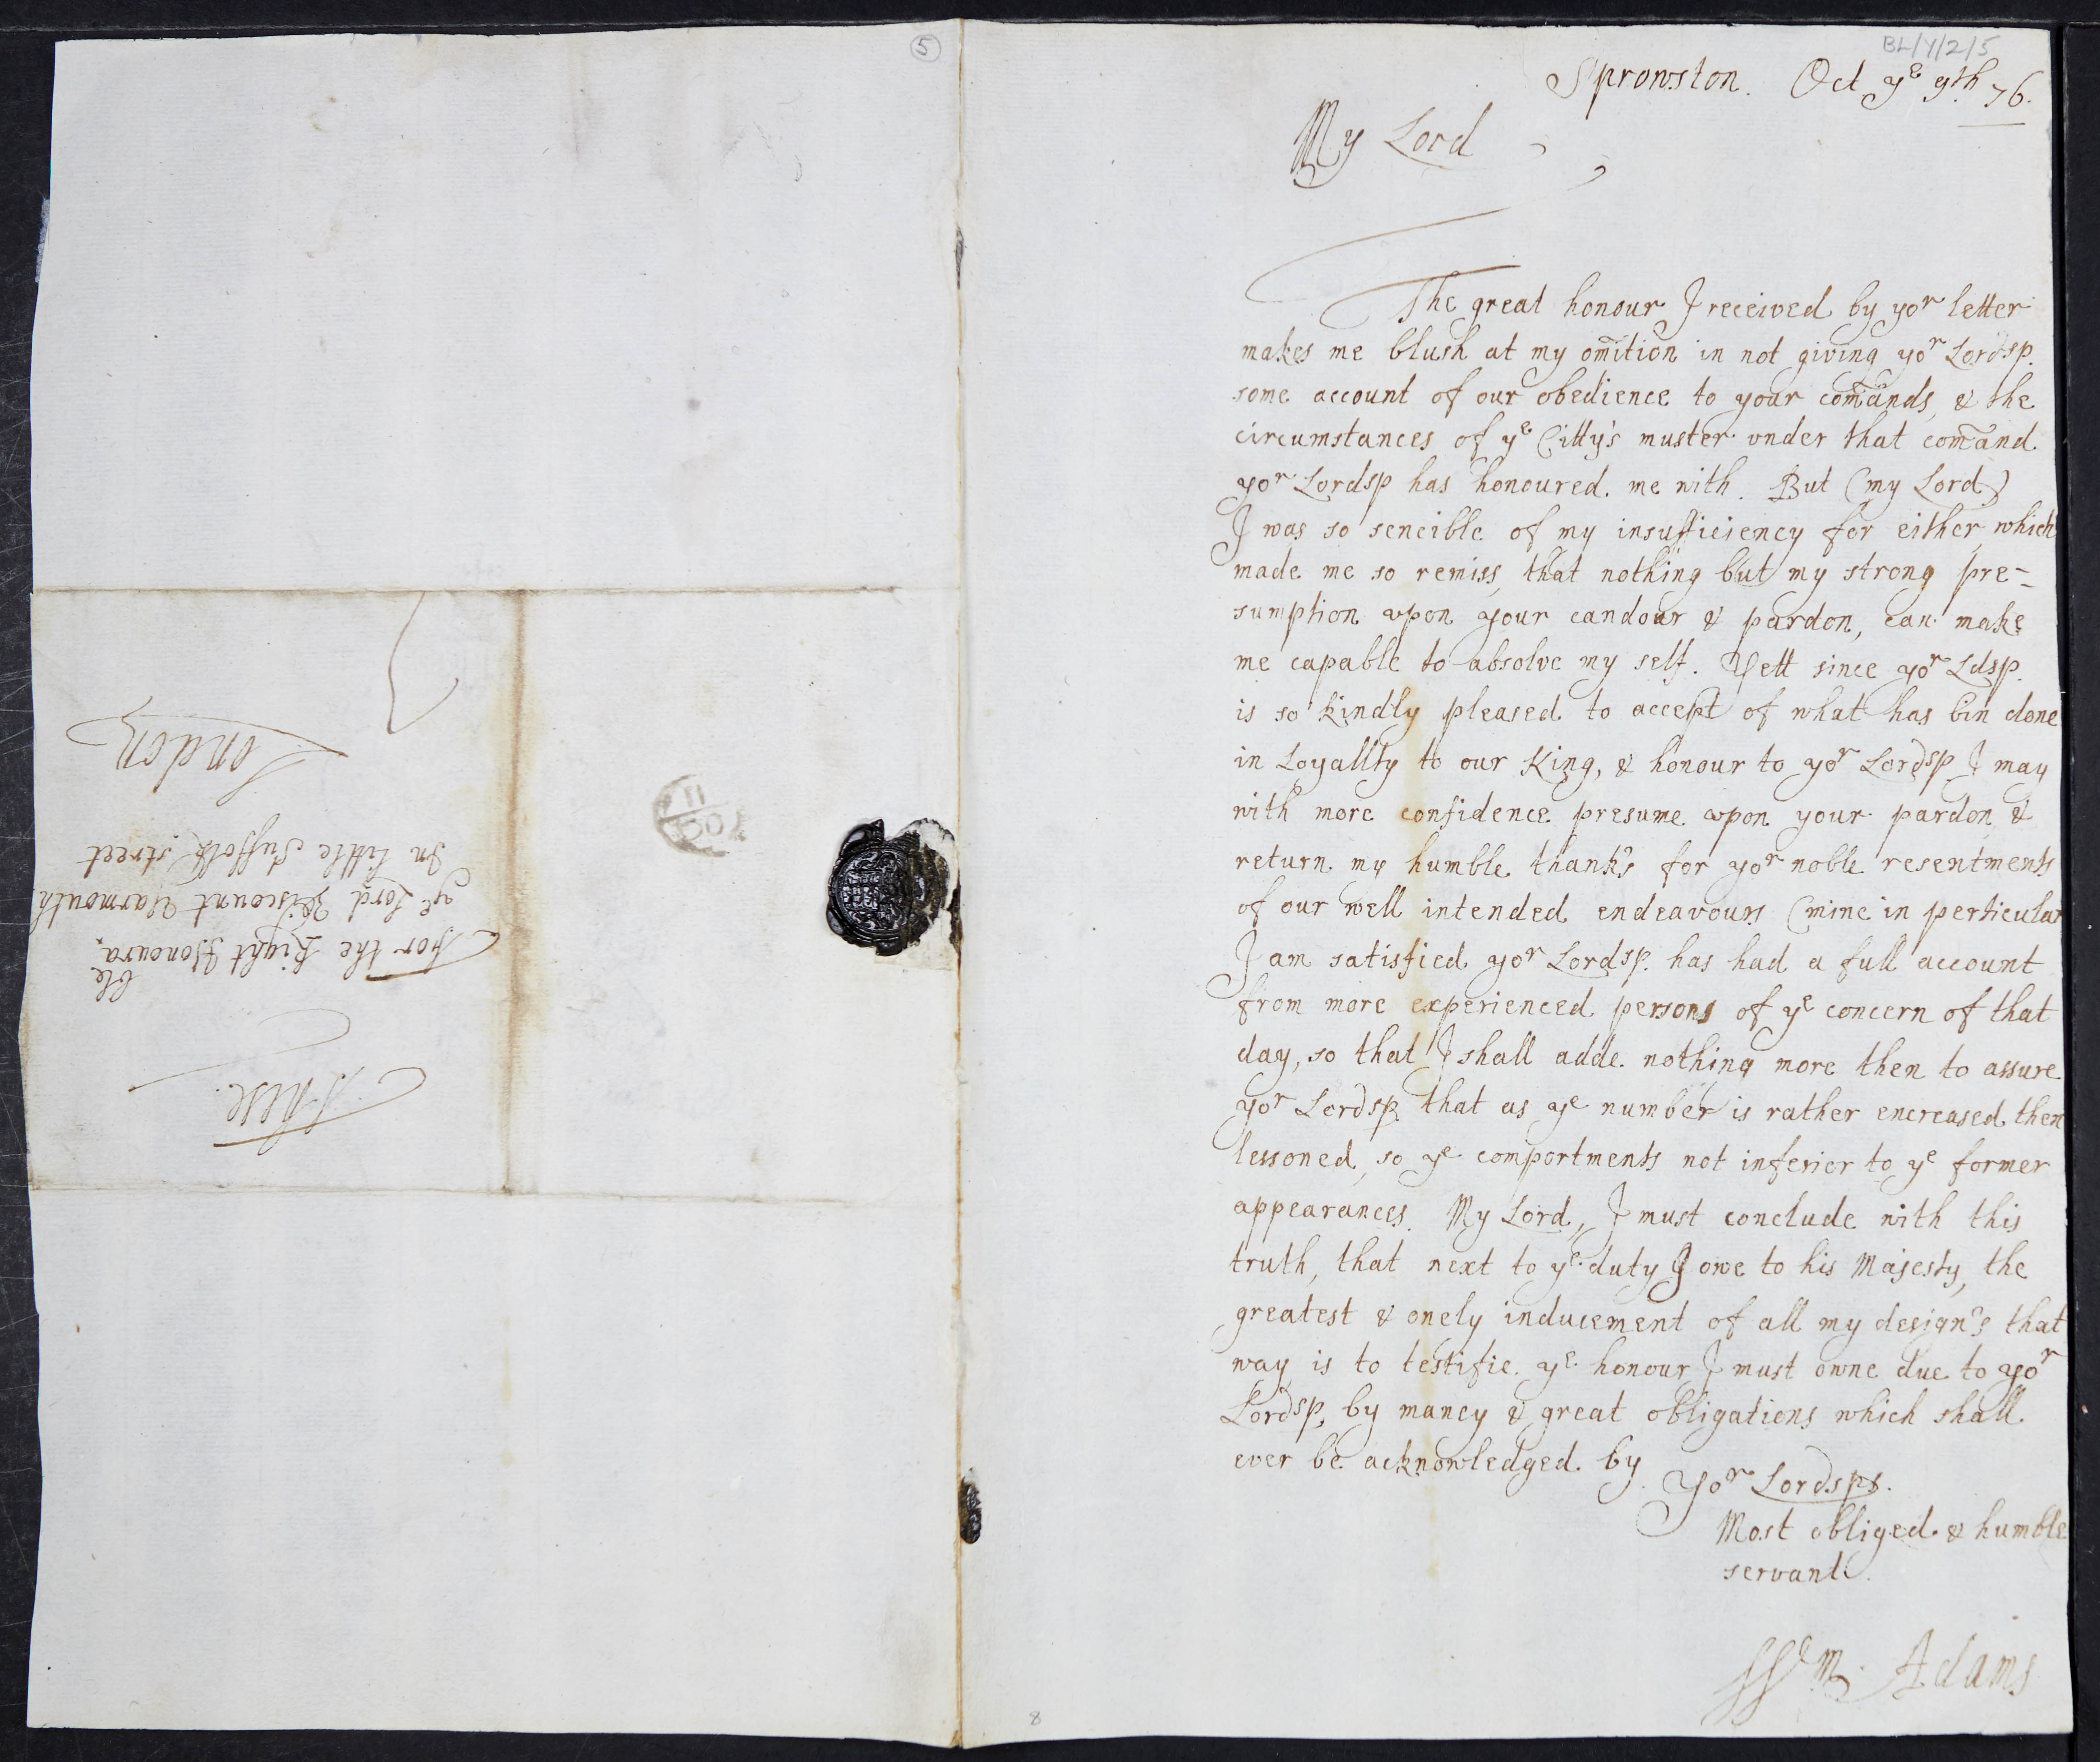 5
London
In little Suffolk street
yᵉ Lord Viscount Yarmouth
For the Right Honoura
ble
These.
11
OC
BL/Y/2/5
Sprowston. Oct yᵉ 9th. 76.
My Lord
The great honour I received by yoʳ letter
makes me blush at my om̃ition in not giving yoʳ Lordsp.
some account of our obedience to your com̃ands, & the
circumstances of yᵉ Citty's muster under that com̃and
yoʳ Lordsp has honoured me with. But (my Lord)
I was so sencible of my insufficiency for either which
made me so remiss, that nothing but my strong pre-
sumption upon your candour & pardon, can make
me capable to absolve my self. Yett since yoʳ Ldsp.
is so kindly pleased to accept of what has bin done
in Loyallty to our King, & honour to yoʳ Lordsp I may
with more confidence presume upon your pardon &
return my humble thank's for yoʳ noble resentments
of our well intended endeavours (mine in perticular
I am satisfied yoʳ Lordsp. has had a full account
from more experienced persons of yᵉ concern of that
day, so that I shall adde nothing more then to assure
yoʳ Lordsp that as yᵉ number is rather encreased then
lessoned, so yᵉ comportments not inferior to yᵉ former
appearances. My Lord, I must conclude with this
truth, that next to yᵉ duty I owe to his Majesty, the
greatest & onely inducement of all my design's that
way is to testifie yᵉ honour I must owne due to yoʳ
Lordsp, by maney & great obligations which shall
ever be acknowledged by
Yoʳ Lordsps.
Most obliged & humble
servant.
Wᵐ. Adams
8